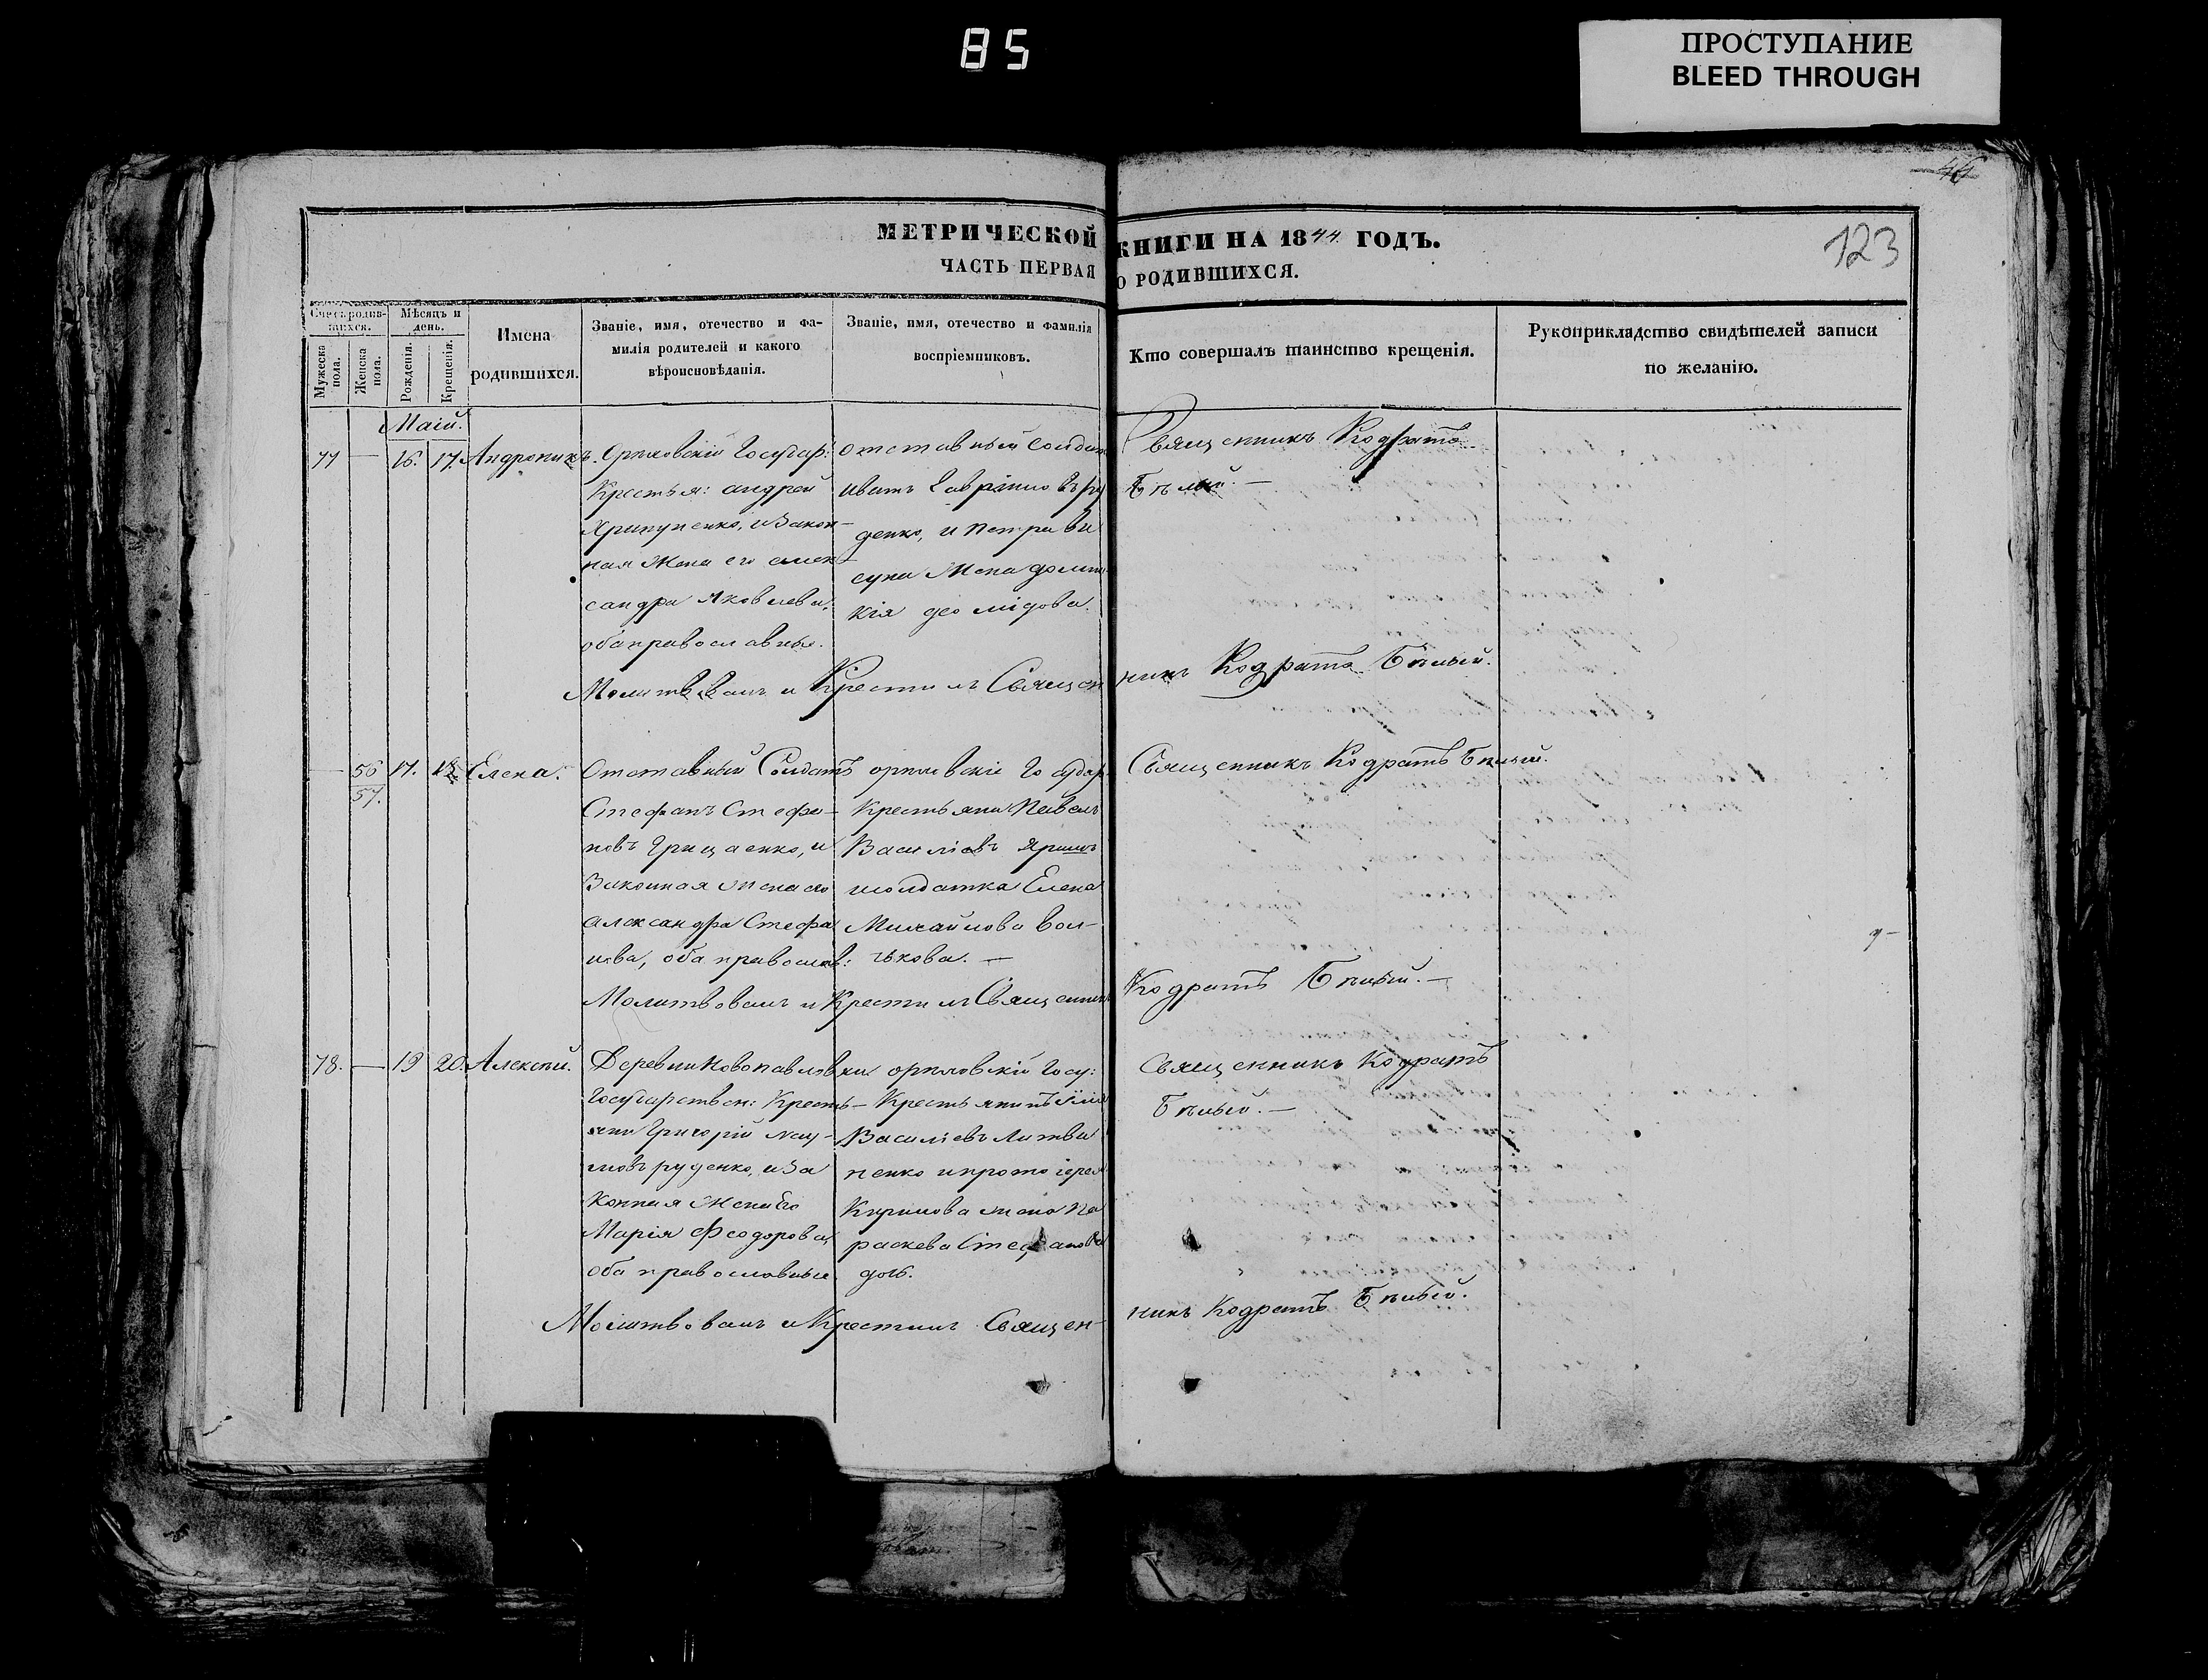 85
ПРОСТУПАНИЕ
BLEED THROUGH
46
123
МЕТРИЧЕСКОЙ КНИГИ НА 1844 ГОДЪ.
ЧАСТЬ ПЕРВАЯ О РОДИВШИХСЯ.
Счетъ родив-
шихся.
Мужеска
пола.
Женска
пола.
Мѣсяцъ и
день.
Рожденія.
Крещенія.
Имена
родившихся.
Званіе, имя, отечество и фа-
милія родителей и какого
вѣроисновѣданія.
Званіе, имя, отечество и фамилія
воспріемниковъ.
Кто совершалъ таинство крещенія.
Рукоприкладство свидѣтелей записи
по желанію.
Маій.
77 — 16. 17. Андроникъ.
Орѣховскій Государ:
Крестья: андрей
Хрипуненко, и Закон-
ная Жена его алек-
сандра Яковлева,
оба православные.
отставный Солдат
Иванъ Гавріиловъ
денко, и Петра
Жена
кія деомидова.
Священникъ Кодратъ
Бѣлый. —
Молитвовалъ и Крестилъ Священникъ Кодратъ Бѣлый.
— 56 17. Елена.
57.
Отставный Солдатъ
Стефанъ Стефа-
новъ Грицаенко, и
Законная Жена его
александра Стефа
нова, оба православ:
орѣховскіе Государ
Крестьяни Павелъ
Василіевъ
солдатка Елена
Михайлова Вол-
чкова. —
Священникъ Кодратъ Бѣлый.
Молитвовалъ и Крестилъ Священникъ Кодратъ Бѣлый. —
78. — 19 20. Алексѣй.
Деревни Новопавловки
Государствен: Кресть-
янин Григорій Нау-
мовъ руденко, и За
Конная Жена Его
Марія Феодорова,
оба православные
орѣховскій Госу:
Крестьянинъ
Василіевъ Литви
ненко и протоіерея
Кирилова жена Па
раскева Стефанова
дочь.
Священникъ Кодратъ
Бѣлый. —
Молитвовалъ и Крестилъ Священ-никъ Кодратъ Бѣлый.